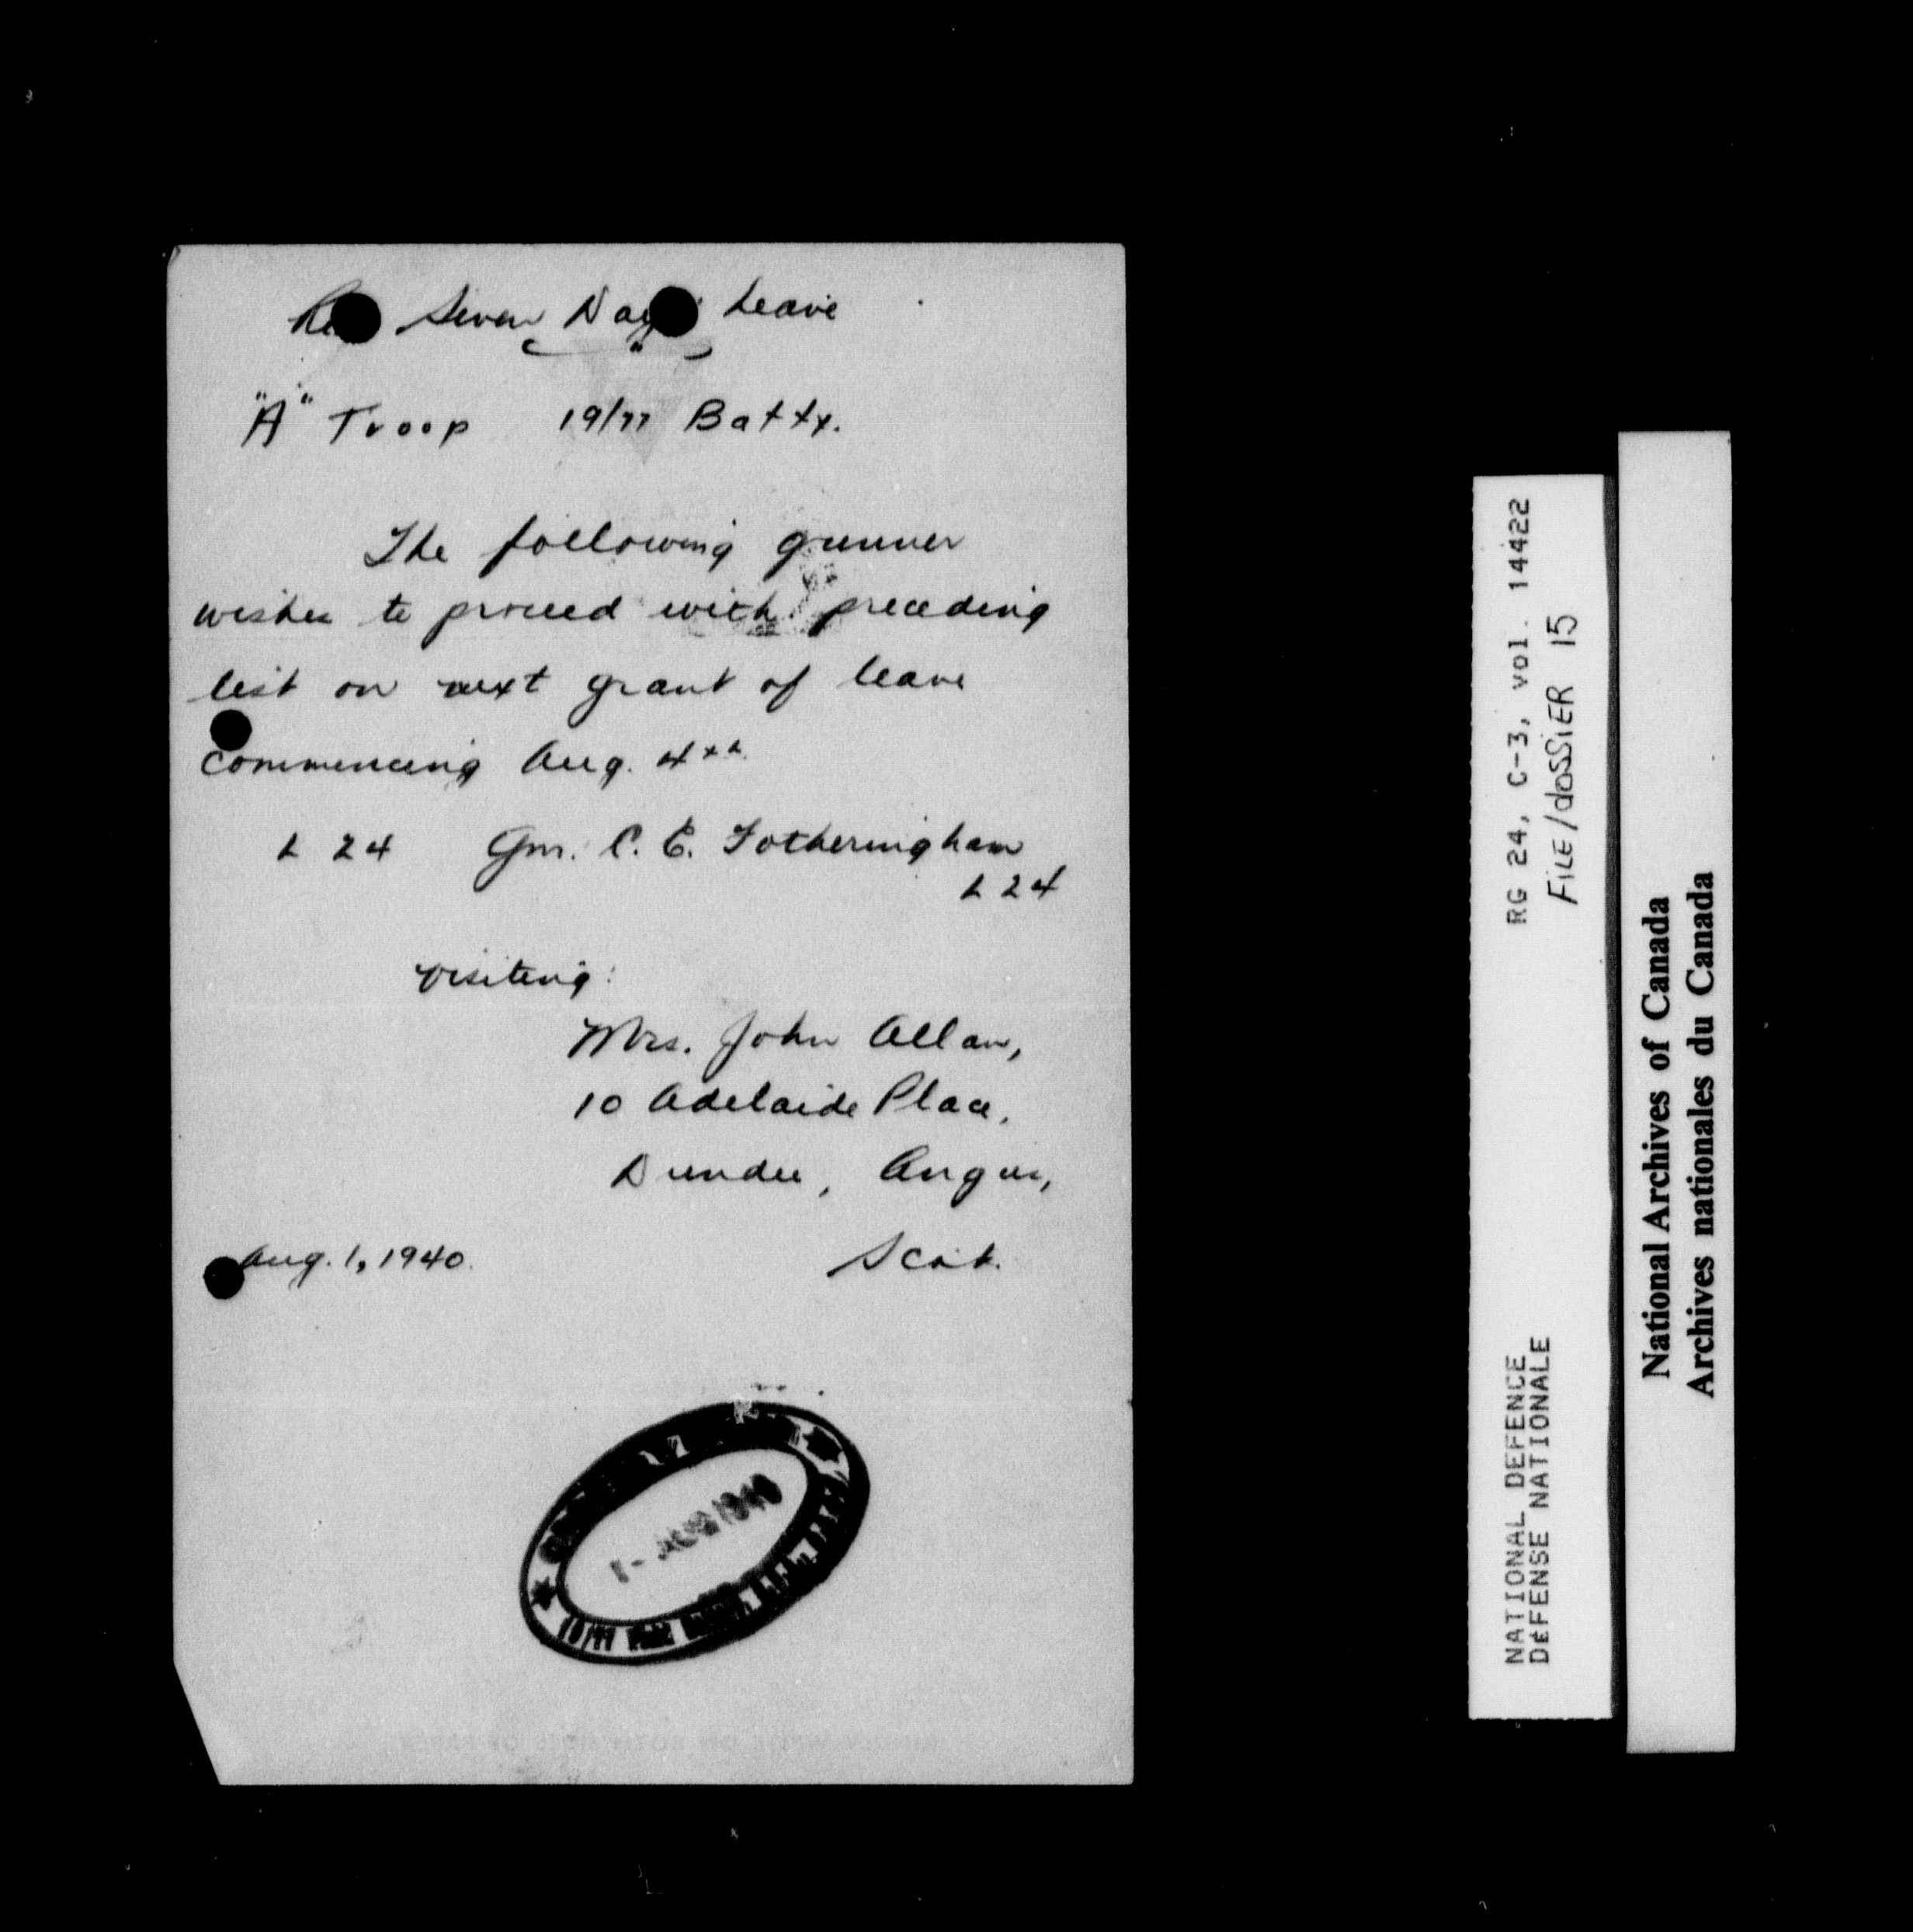 Re Seven Days' Leave
"A" Troop 19/77 Batty.
The following gunner
wishes to proceed with preceding
list on next grant of leave
commencing Aug. 4th
L 24 Gnr. C. E. Fotheringham
L 24
visiting:
Mrs. John Allan,
10 Adelaide Place,
Dundee, Angus,
Scot.
Aug. 1, 1940.
1- AUG 1940
19/77
RG 24, C-3, vol. 14422
FILE/dOSSiER 15
NATIONAL DEFENCE
DÉFENSE NATIONALE
National Archives of Canada
Archives nationales du Canada